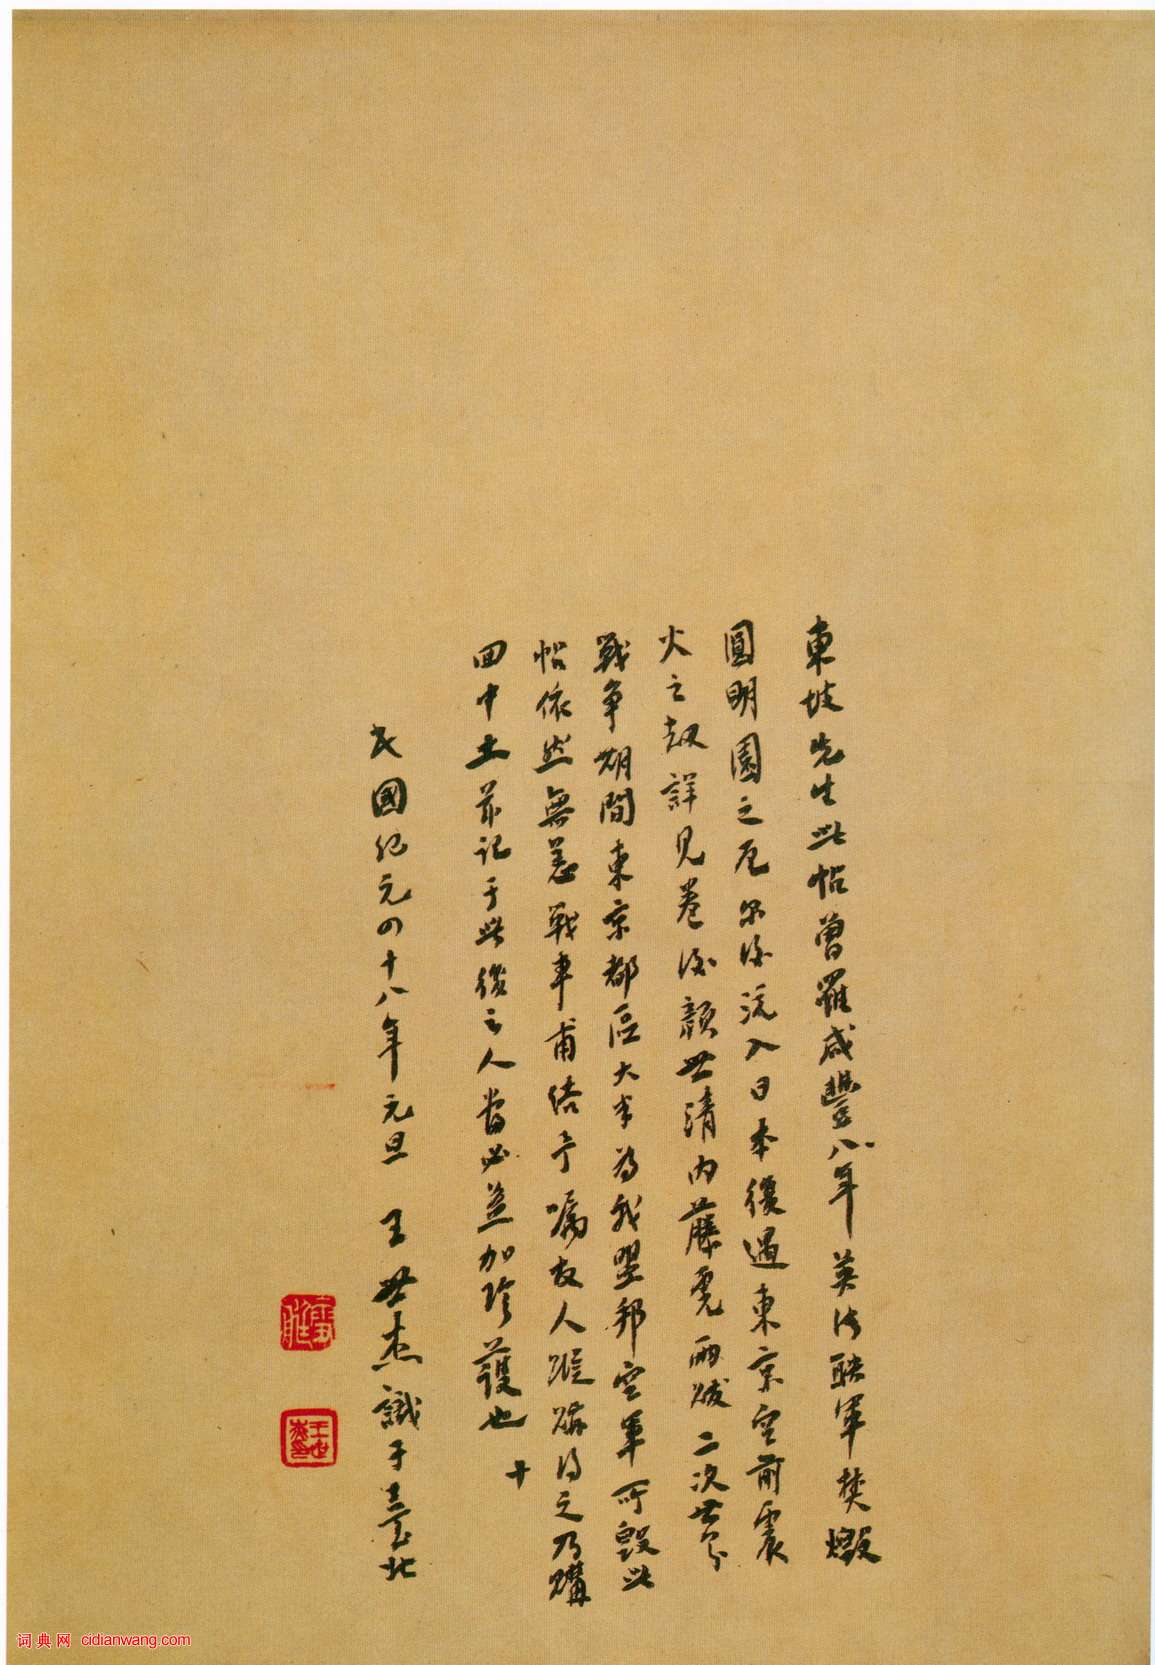 東坡先生此帖曾罹咸豐八年英法聯軍焚燬
圓明園之厄尔後流入日本復遇東京空前震
火之劫詳見卷後顏世清內藤虎兩跋二次世界
戰爭期間東京都區大半為我盟邦空軍所毀此
帖依然無恙戰事甫結予囑友人蹤購得之乃購
回中土並記于此後之人當必益加珍護也
十
民國紀元四十八年元旦 王世杰識于臺北
王世杰印
词典网 cidianwang.com